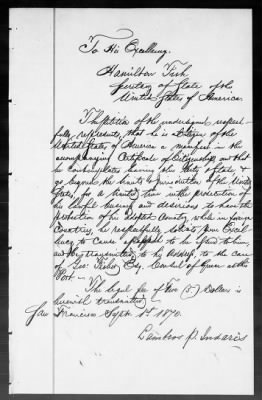 To His Excellency,
Hamilton Fish
Secretary of State of the
United States of America.
The Petition of the undersigned respect-
fully represents, that he is a Citizen of the
United States of America as manifest in the
accompanying Certificate of Citizenship and that
he contemplates leaving the City of State &
go beyond the limits & jurisdiction of the United
States, for a limited time in the prosecution of
his lawful business and desirious to have the
protection of his adopted Country, while in foreign
Countries, he respectfully solicits your Excel-
lency to cause a passport to be issued to him,
and by transmitting to his address, to the care
of Geo. Fisher Esq. Consul of Greece at this
Port.
The legal fee of Five (5) Dollars is
herewith transmitted.
San Francisco Sept. 1st 1870.
Lambros P.